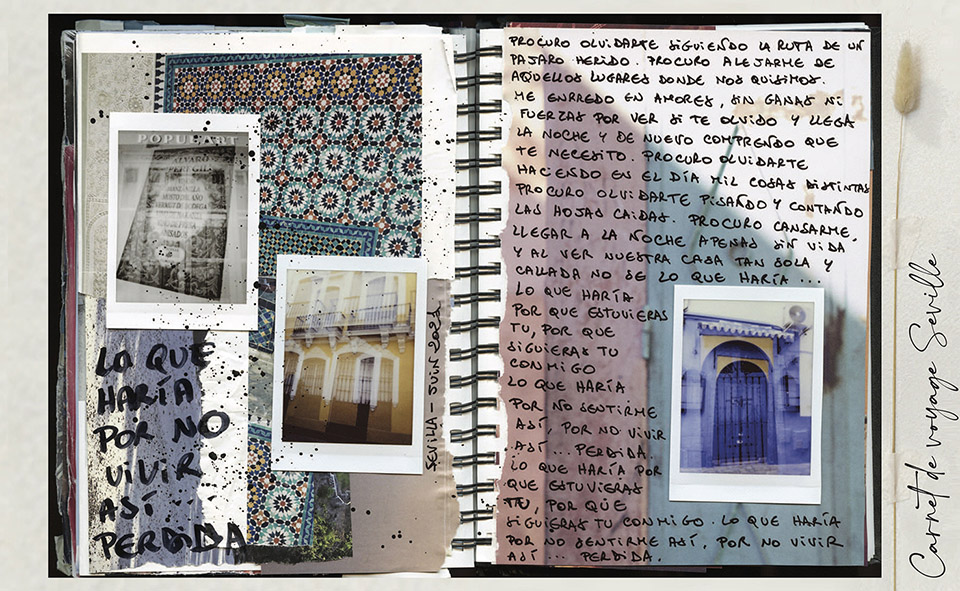 POPULART
ALVARO
MANZANILLA
MOSTO DEL AÑO
LO QUE
HARÍA
POR NO
VIVIR
ASÍ ...
PERDIDA
SEVILLA - JUIN 2021
PROCURO OLVIDARTE SIGUIENDO LA RUTA DE UN
PAJARO HERIDO. PROCURO ALEJARME DE
AQUELLOS LUGARES DONDE NOS QUISIMOS.
ME ENRREDO EN AMORES, SIN GANAS NI
FUERZAS POR VER SI TE OLVIDO Y LLEGA
LA NOCHE Y DE NUEVO COMPRENDO QUE
TE NECESITO. PROCURO OLVIDARTE
HACIENDO EN EL DÍA MIL COSAS DISTINTAS
PROCURO OLVIDARTE PISANDO Y CONTANDO
LAS HOJAS CAIDAS. PROCURO CANSARME,
LLEGAR A LA NOCHE APENAS SIN VIDA
Y AL VER NUESTRA CASA TAN SOLA Y
CALLADA NO SE LO QUE HARÍA ...
LO QUE HARÍA
POR QUE ESTUVIERAS
TU, POR QUE
SIGUIERAS TU
CONMIGO
LO QUE HARÍA
POR NO SENTIRME
ASÍ, POR NO VIVIR
ASÍ ... PERDIDA.
LO QUE HARÍA POR
QUE ESTUVIERAS
TU, POR QUE
SIGUIERAS TU CONMIGO. LO QUE HARÍA
POR NO SENTIRME ASÍ, POR NO VIVIR
ASÍ ... PERDIDA.
Carnet de voyage Seville